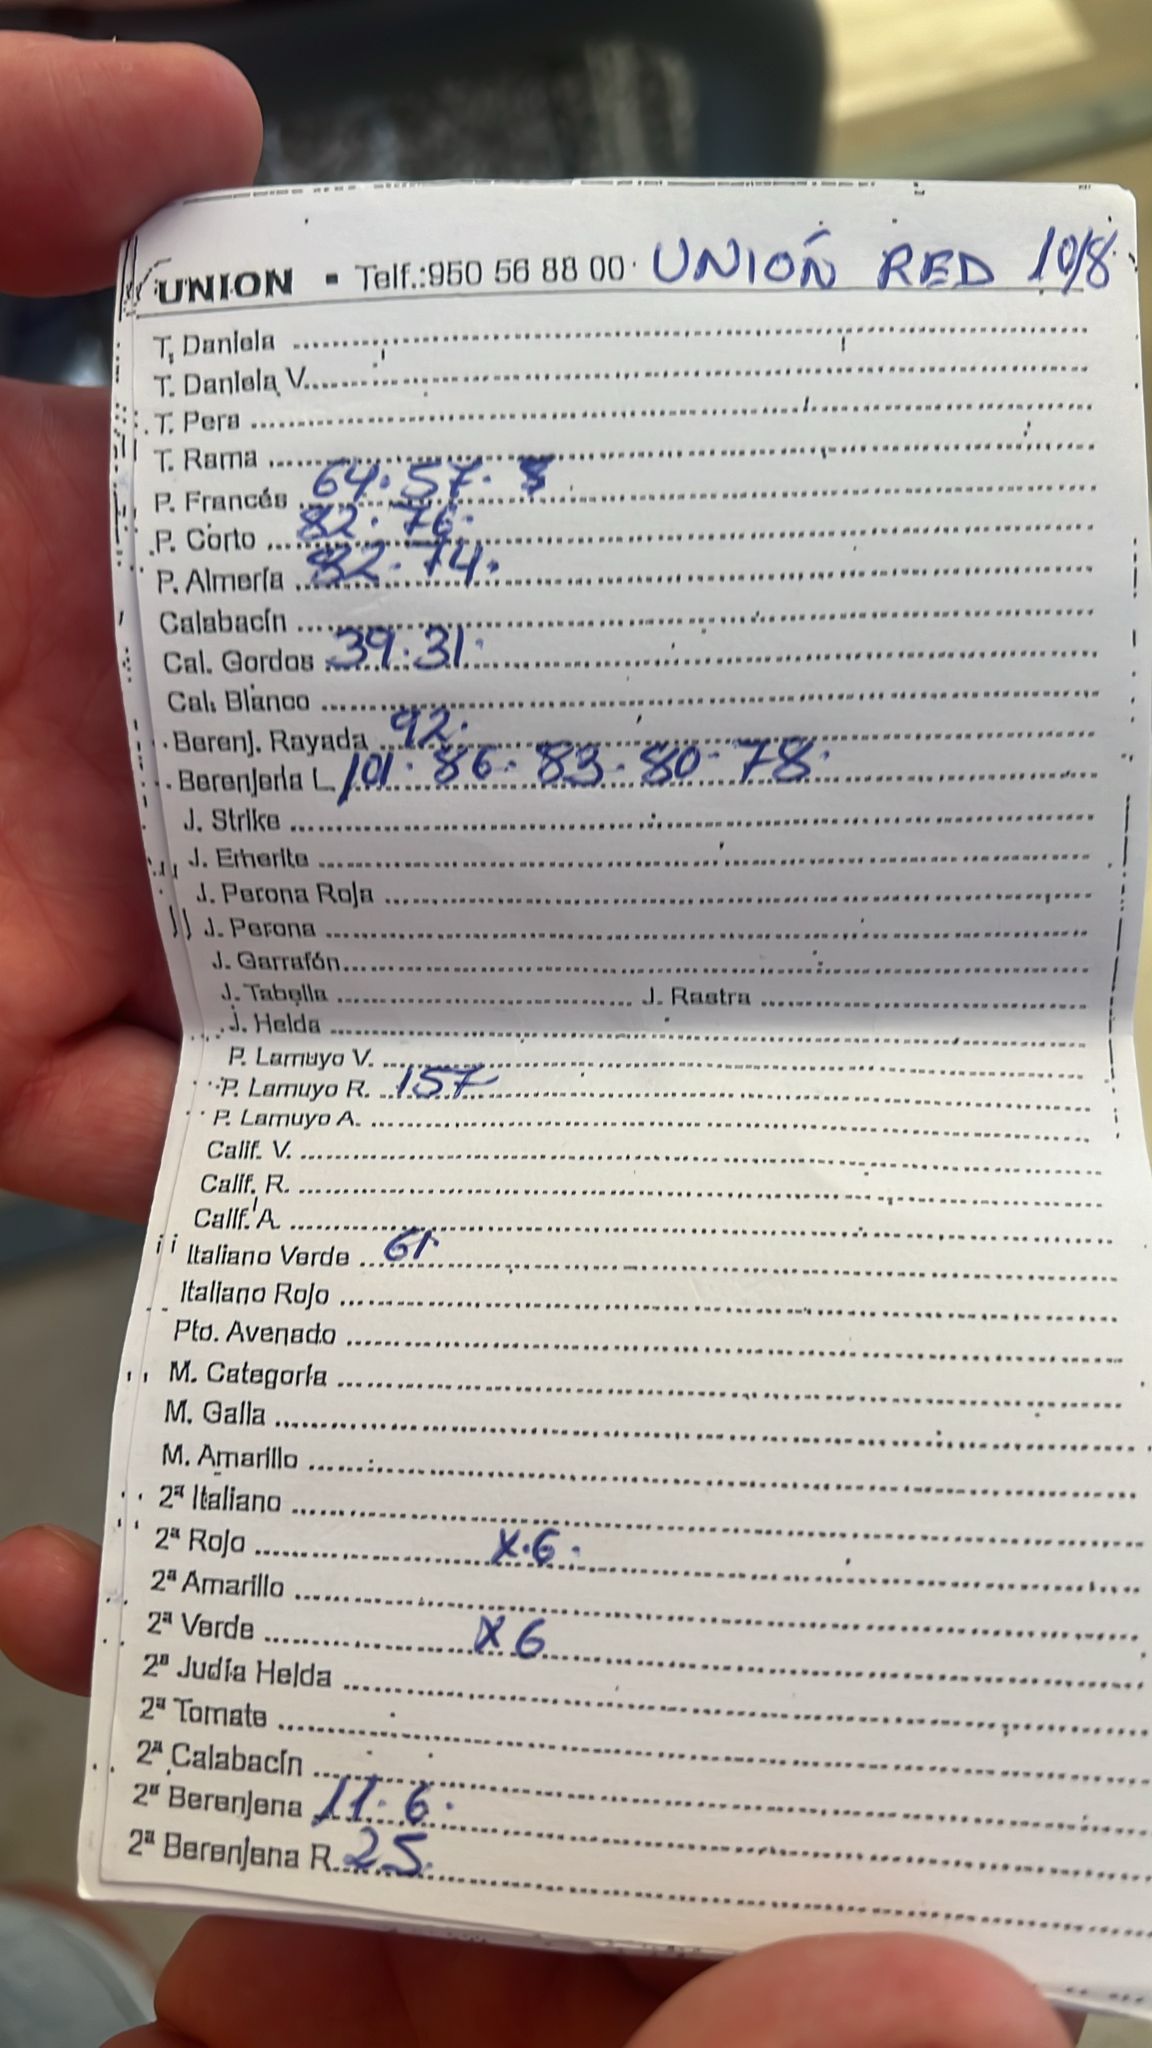 UNION ▪ Telf.:950 56 88 00 UNIÓN RED 10/8
T. Daniela
T. Daniela V.
T. Pera
T. Rama
P. Francés 64. 57.
P. Corto 82. 76.
P. Almería 82. 74.
Calabacín
Cal. Gordos 39. 31.
Cal. Blanco
Berenj. Rayada 92.
Berenjena L. 101. 86. 83. 80. 78.
J. Strike
J. Emerite
J. Perona Roja
J. Perona
J. Garrafón
J. Tabella J. Rastra
J. Helda
P. Lamuyo V.
P. Lamuyo R. 157
P. Lamuyo A.
Calif. V.
Calif. R.
Calif. A.
Italiano Verde 61.
Italiano Rojo
Pto. Avenado
M. Categoría
M. Galia
M. Amarillo
2ª Italiano
2ª Rojo X.6.
2ª Amarillo
2ª Verde X 6
2ª Judía Helda
2ª Tomate
2ª Calabacín
2ª Berenjena 11. 6.
2ª Berenjena R. 25.